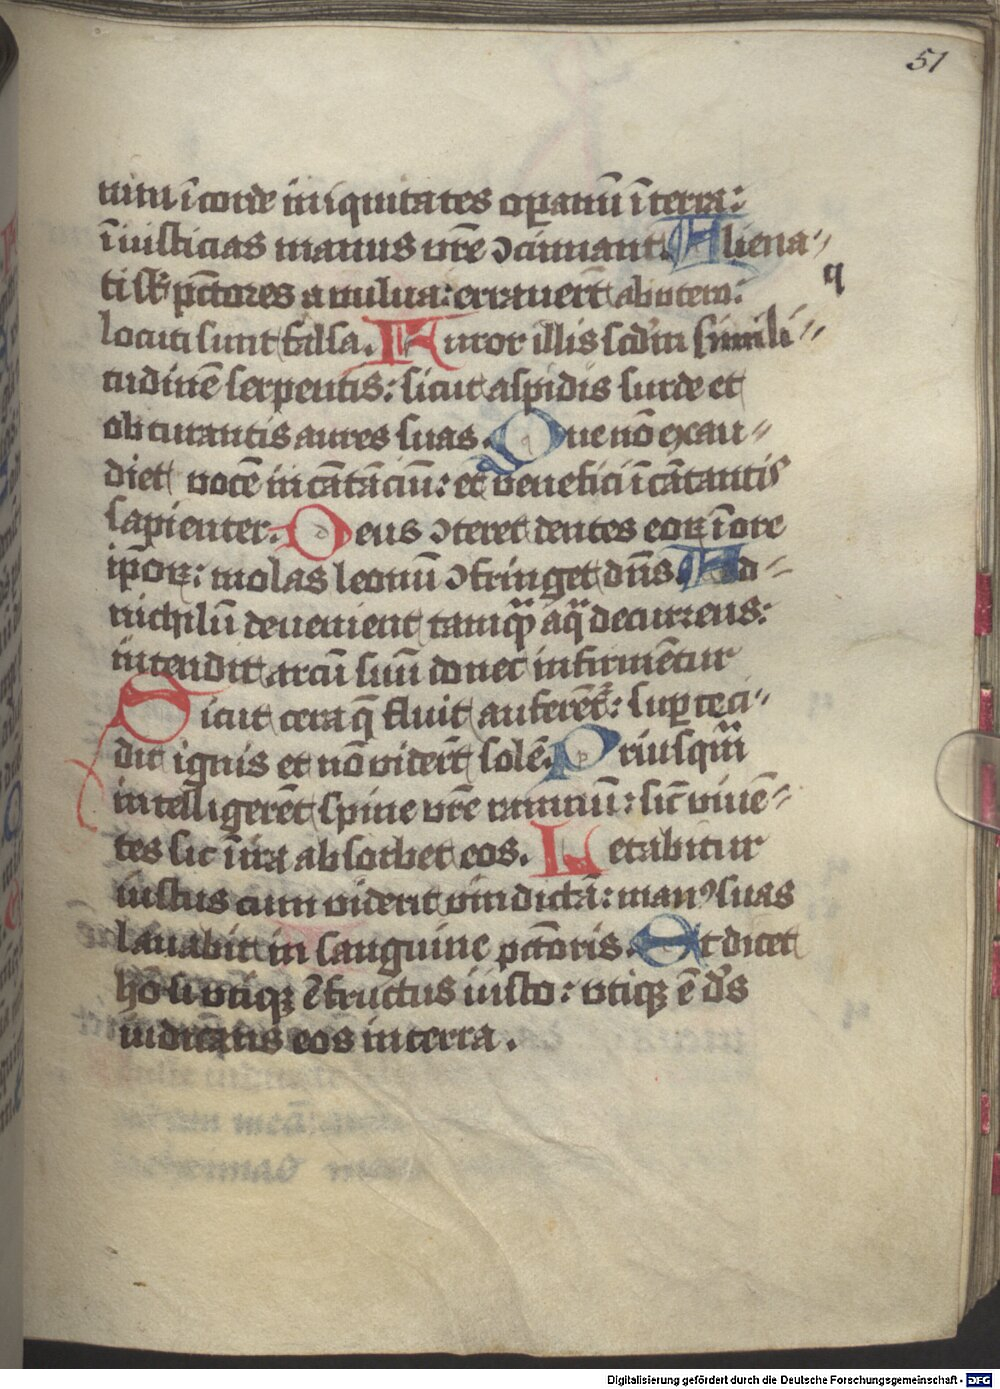 51
nim ī corde iniquitates oꝑamī ī terra:
īiusticias manus vr̄e ↄcinnant. Aliena〃
q
ti sūt pctōres a vulua: errauert̄ ab utero:
locuti sunt falsa. Furor illis scd̄m simili〃
tudinē serpentis: sicut aspidis surde et
obturantis aures suas. Que nō exau〃
diet vocē incātāciū: et venefici īcātantis
sapienter. Deus ↄteret dentes eoꝝ ī ore
ip̄oꝝ: molas leonū ↄfringet dn̄s. Ad〃
nichilū deuenient tamqͣ aqͣ decurrens:
intendit arcū suū donec infirmētur
Sicut cera q̄ fluit auferēt͛: suꝑceci〃
dit ignis et nō viderūt solē. Priusqͣm
intelligerēt spine vr̄e ramnū: sic̄ viuē〃
tes sic ī ira absorbet eos. Letabitur
iustus cum viderit vindictā: manꝰ suas
lauabit in sanguine pctōris. Et dicet
hō si vtiqꝫ ē fructus iusto: vtiqꝫ ē d̄s
iudicans eos in terra.
Digitalisierung gefördert durch die Deutsche Forschungsgemeinschaft - DFG